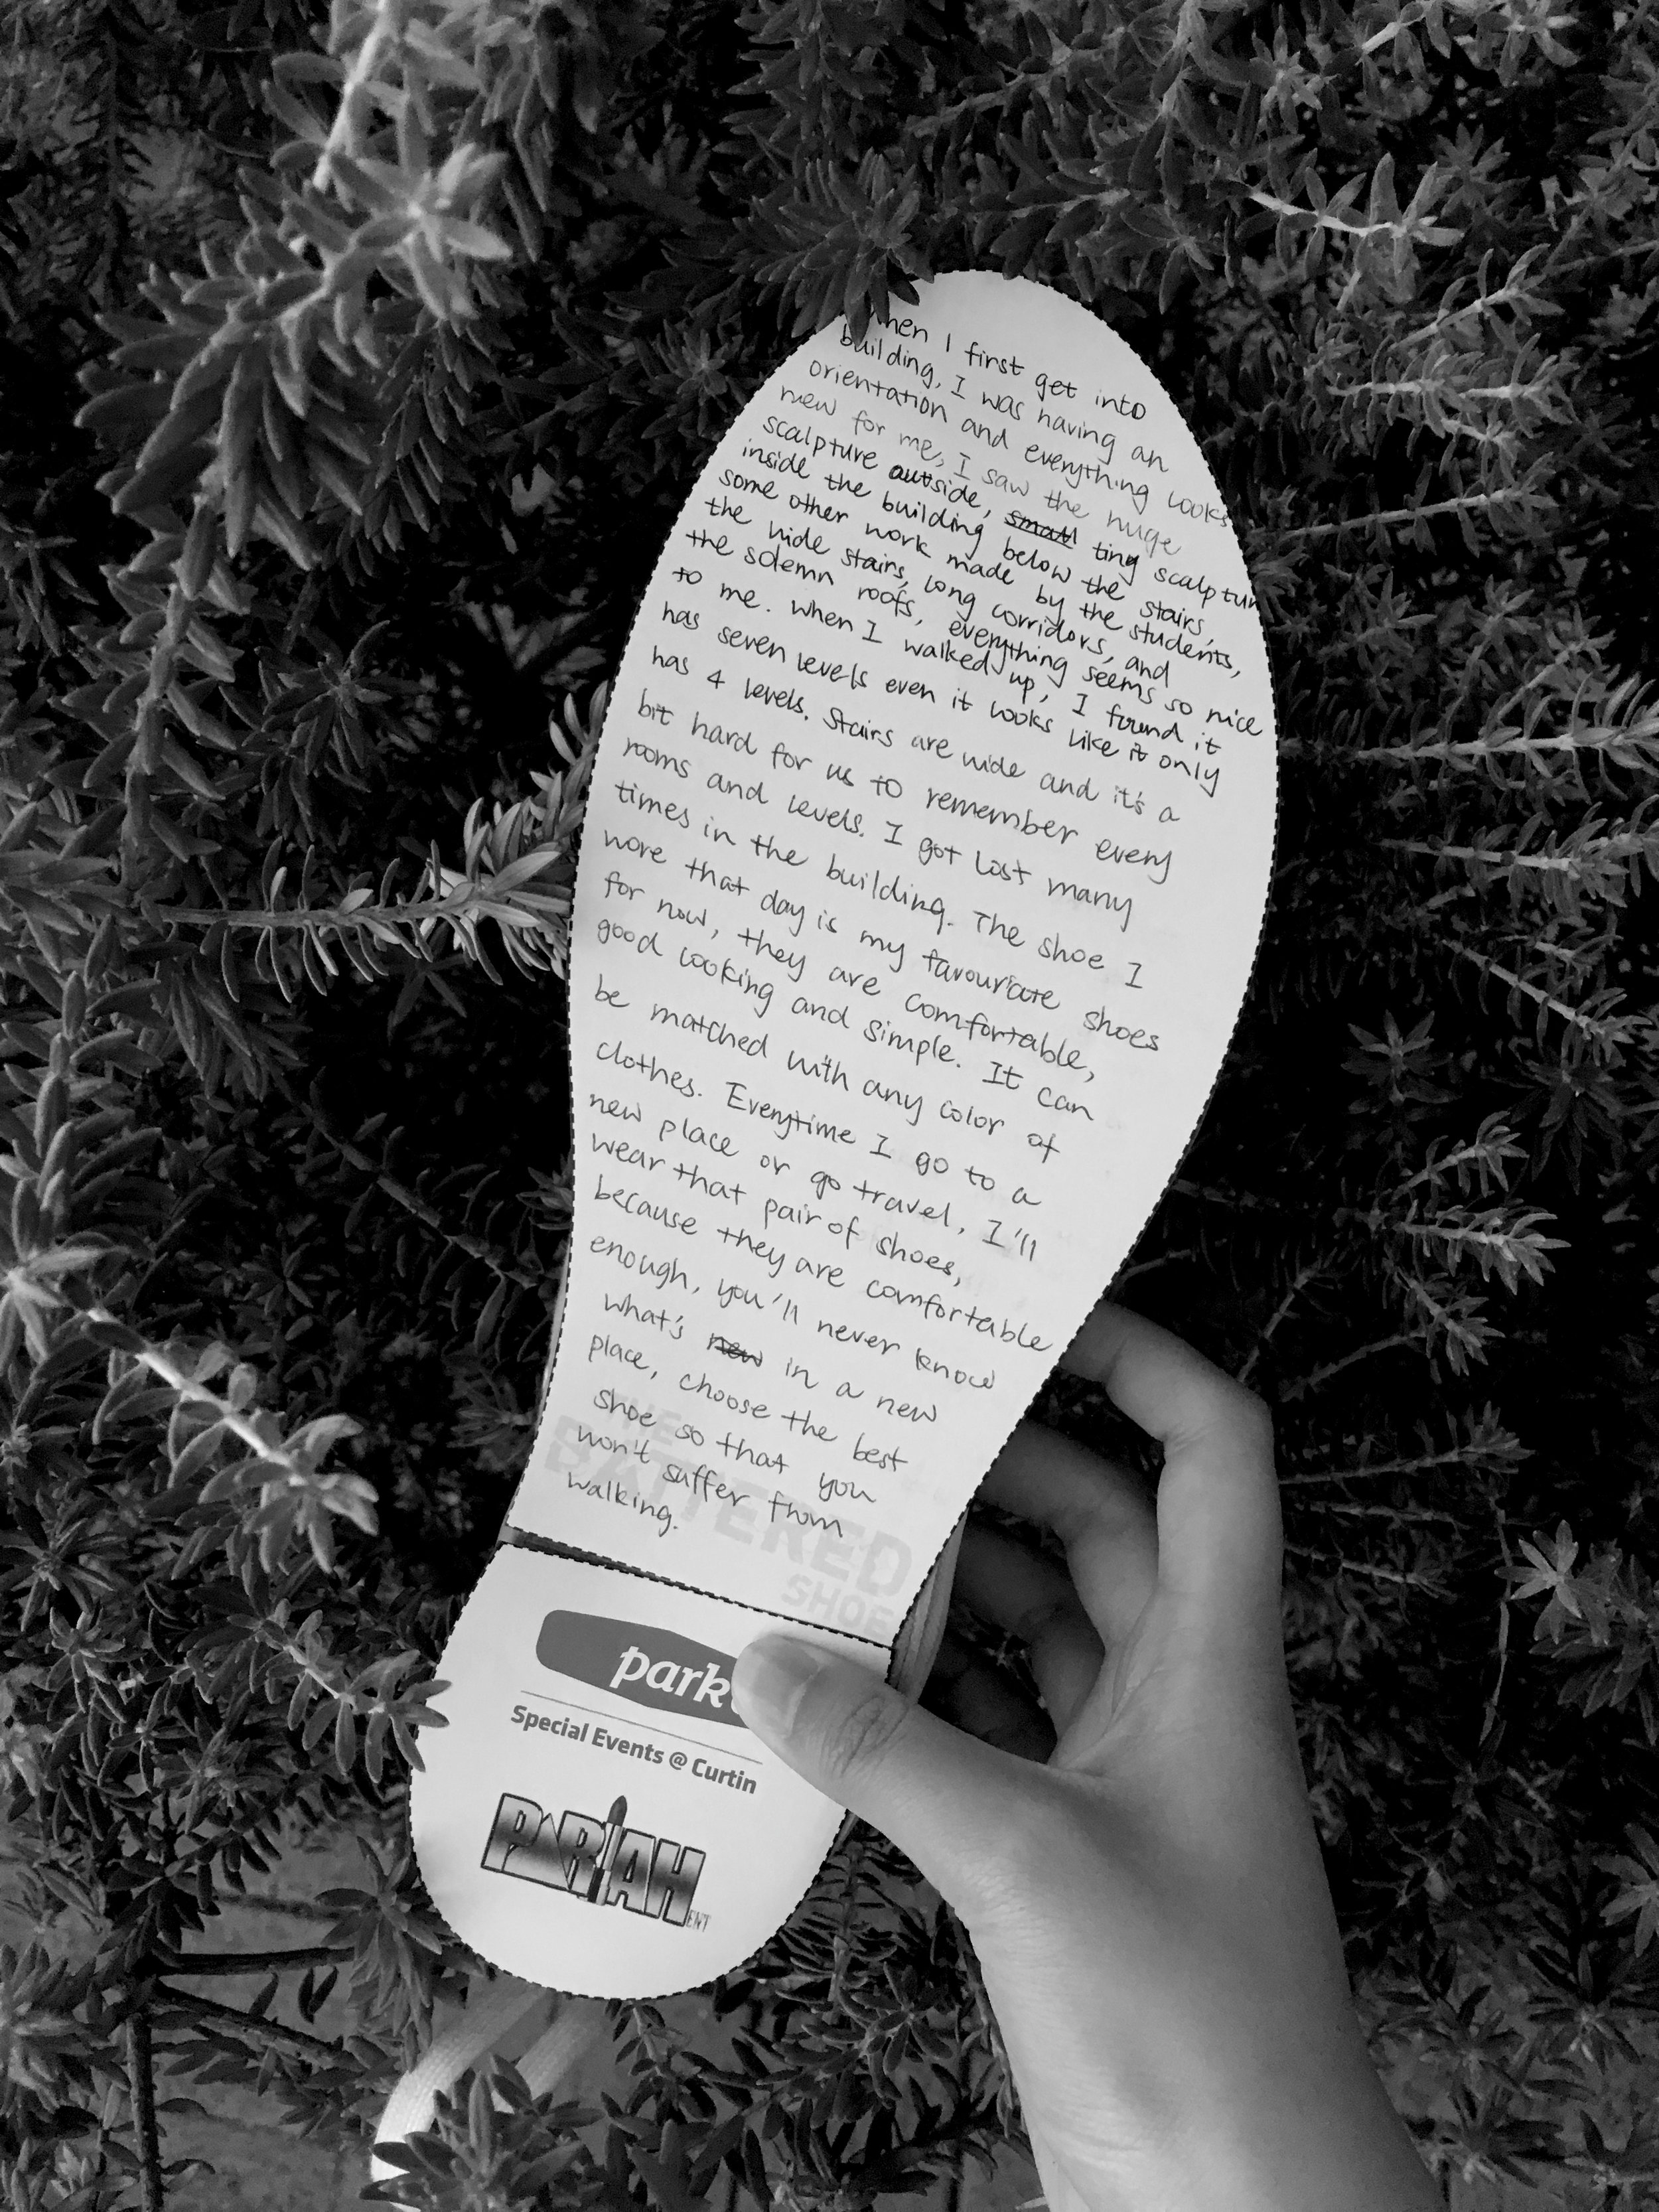 When I first get into
building, I was having an
orientation and everything looks
new for me, I saw the huge
scalpture outside, small ting scalptur
inside the building below the stairs,
some other work made by the students,
the wide stairs, long corridors, and
the solemn roofs, everything seems so nice
to me. When I walked up, I found it
has seven levels even it looks like it only
has 4 levels. Stairs are wide and it's a
bit hard for us to remember every
rooms and levels. I got lost many
times in the building. The shoe I
wore that day is my favouriate shoes
for now, they are comfortable,
good looking and simple. It can
be matched with any color of
clothes. Everytime I go to a
new place or go travel, I'll
wear that pair of shoes,
because they are comfortable
enough, you'll never know
what's new in a new
place, choose the best
shoe so that you
won't suffer from
walking.
THE
BATTERED
SHOE
park
Special Events @ Curtin
PARIAH
ENT